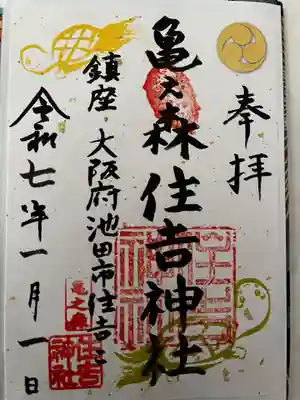 奉拝
亀之森住吉神社
鎮座 大阪府池田市住吉二
令和七年一月一日
亀之森
住吉
神社